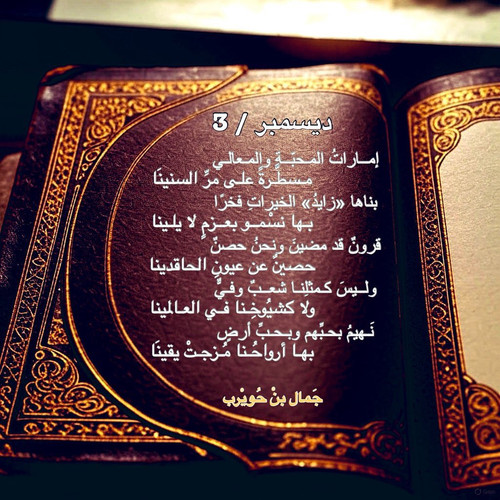 ديسمبر / 3
إمــاراتُ المـحبّـةِ والمـعالـي
مـسطَّـرةٌ علـى مـرِّ السنينَا
بناها «زايدُ» الخيراتِ فخرًا
بـها نسْمُــو بعــزمٍ لا يلـينا
قرونٌ قد مضينَ ونحنُ حصنٌ
حصينٌ عن عيونِ الحاقدينا
ولـيسَ كـمثْلِنـا شـعـبٌ وفـيٌّ
ولا كشيُوخِـنا فـي العـالمينا
نَـهيمُ بحبِّهم وبـحبِّ أرضٍ
بـهـا أرواحُـنـا مُـزجتْ يقينَا
جَمال بنْ حُويْرب